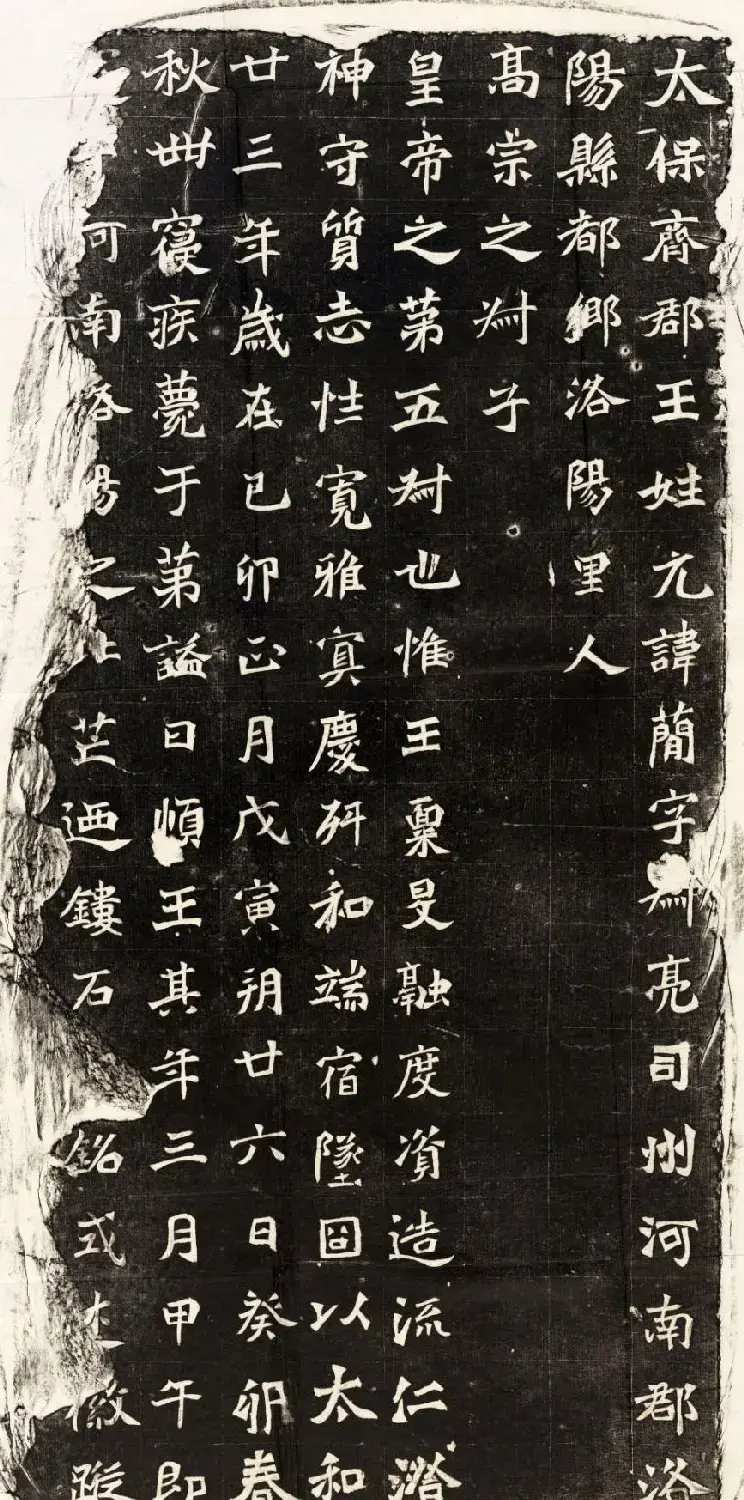 太保齊郡王姓元諱蕳字叔亮司州河南郡洛
陽縣都鄉洛陽里人
髙宗之叔子
皇帝之苐五叔也惟王稟旻融度資造流仁澹
神守質志性寬雅寘慶舛和端宿墜固以太和
廿三年歲在己卯正月戊寅朔廿六日癸卯春
秋卌寢疾薨于苐謚曰順王其年三月甲午即
河南洛陽之北芒迺鏤石銘式述徽蹤